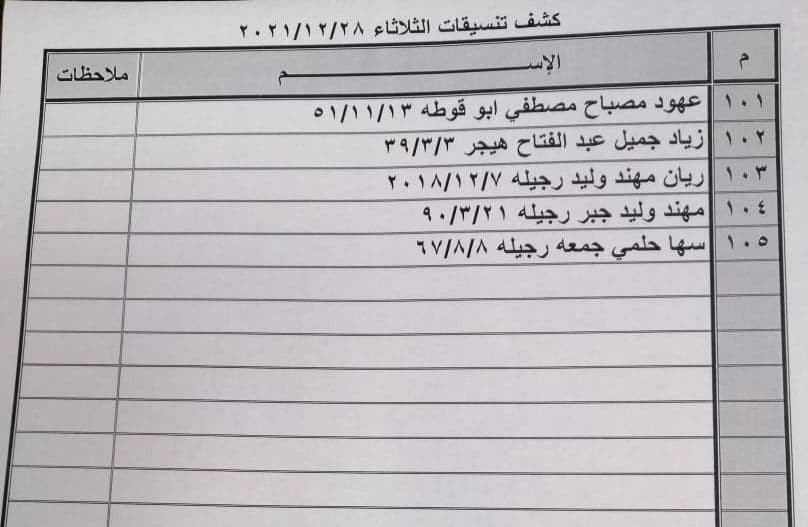 كشف تنسيقات الثلاثاء ٢٠٢١/١٢/٢٨
م الإســـــــــم ملاحظات
١٠١ عهود مصباح مصطفي ابو قوطه ٥١/١١/١٣
١٠٢ زياد جميل عبد الفتاح هيجر ٣٩/٣/٣
١٠٣ ريان مهند وليد رجيله ٢٠١٨/١٢/٧
١٠٤ مهند وليد جبر رجيله ٩٠/٣/٢١
١٠٥ سها حلمي جمعه رجيله ٦٧/٨/٨